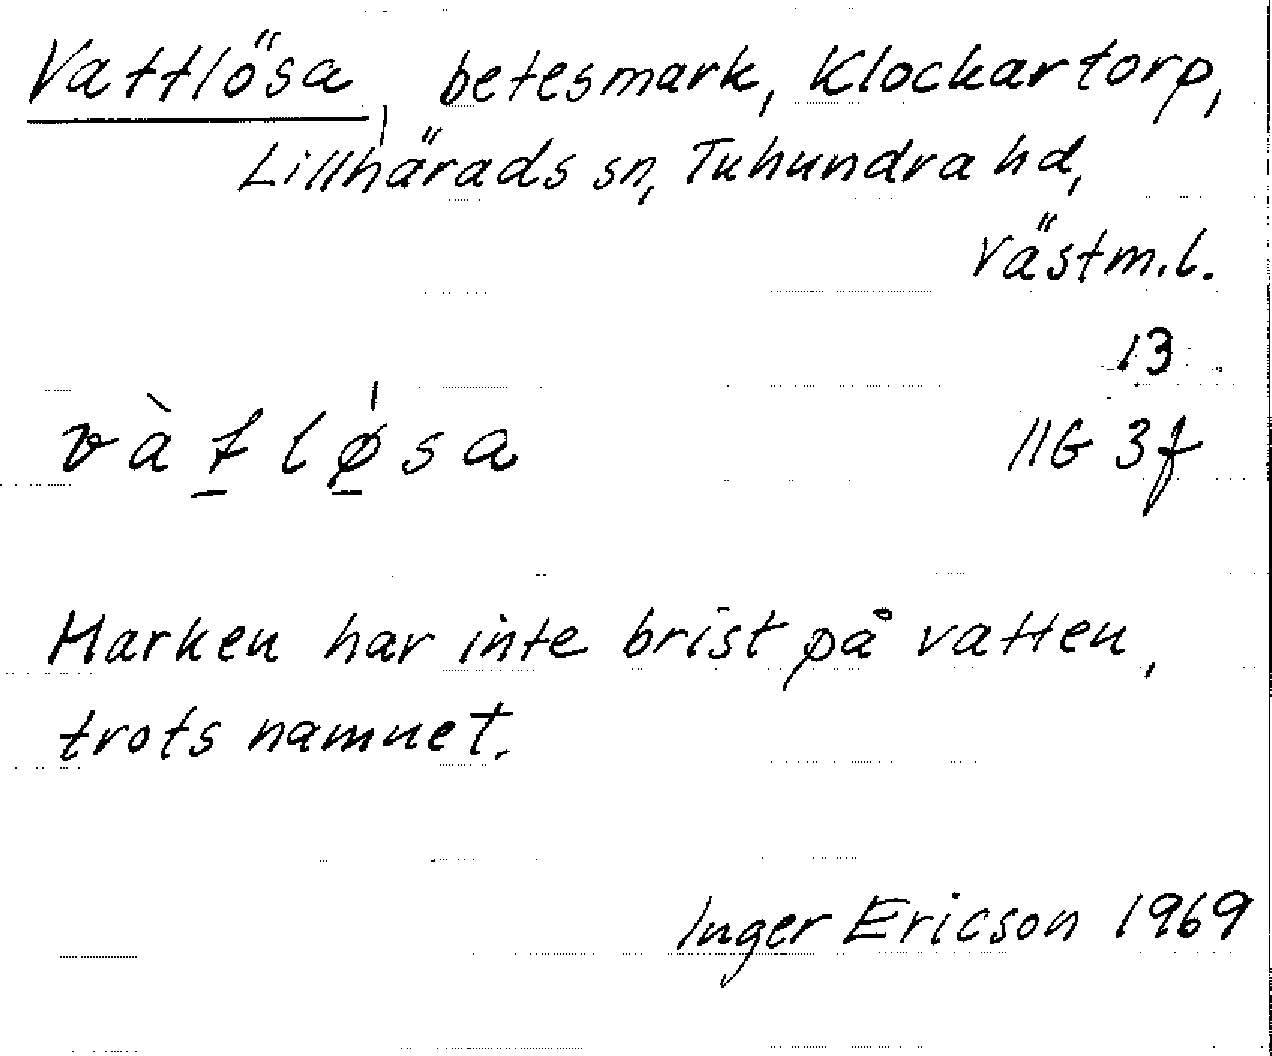 Vattlösa, betesmark, Klockartorp,
Lillhärads sn, Tuhundra hd,
Västm.l.
13
vàt̲lǿ̲sa 11G 3f
Marken har inte brist på vatten,
trots namnet.
Inger Ericson 1969